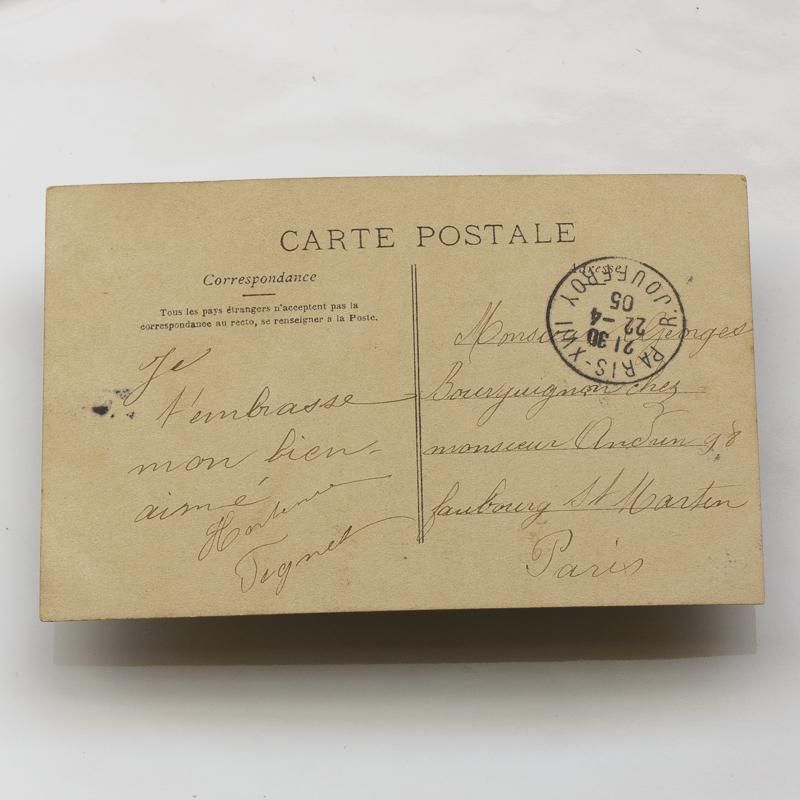 CARTE POSTALE
Correspondance
Tous les pays étrangers n'acceptent pas la
correspondance au recto, se renseigner à la Poste.
Je
t'embrasse
mon bien-
aimé
Hortense
Adresse
Monsieur Georges
Bourguignon chez
monsieur
faubourg St Martin
Paris
PARIS-XVII
R. JOUFFROY
21 30
22 - 4
05